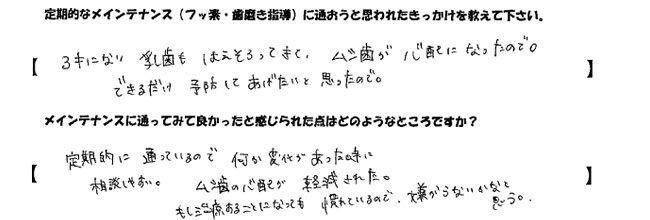 定期的なメインテナンス（フッ素・歯磨き指導）に通おうと思われたきっかけを教えて下さい。
【 3才になり 乳歯も はえそろってきて、 ムシ歯が 心配に なったので。 】
できるだけ 予防して あげたいと 思ったので。
メインテナンスに通ってみて良かったと感じられた点はどのようなところですか？
【 定期的に 通っているので 何か 変化が あった時に 】
相談しやすい。 ムシ歯の心配が 軽減された。
もし治療することになっても 慣れているので、嫌がらないかなと
思う。